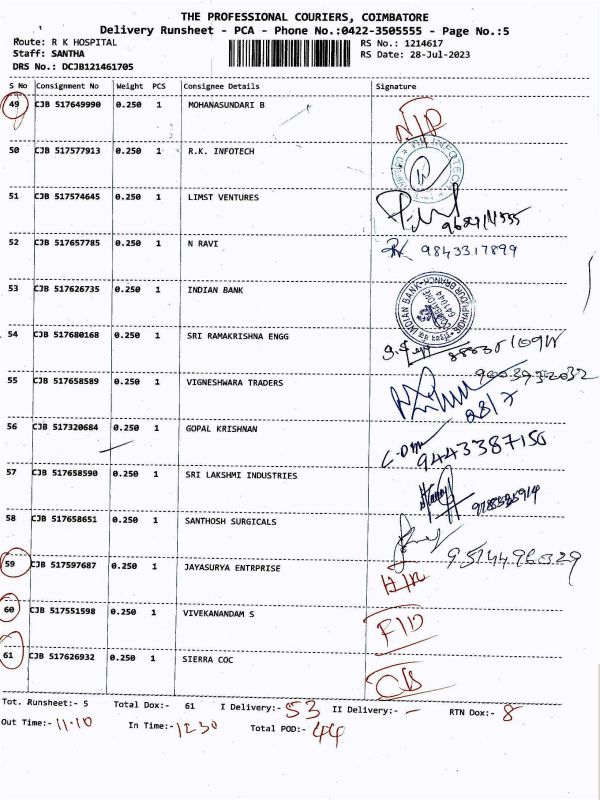 THE PROFESSIONAL COURIERS, COIMBATORE
Delivery Runsheet - PCA - Phone No.:0422-3505555 - Page No.:5
Route: R K HOSPITAL RS No.: 1214617
Staff: SANTHA RS Date: 28-Jul-2023
DRS No.: DCJB121461705
S No Consignment No Weight PCS Consignee Details Signature
49 CJB 517649990 0.250 1 MOHANASUNDARI B
50 CJB 517577913 0.250 1 R.K. INFOTECH
51 CJB 517574645 0.250 1 LIMST VENTURES
52 CJB 517657785 0.250 1 N RAVI 9843317899
53 CJB 517626735 0.250 1 INDIAN BANK INDIAN BANK 641044
54 CJB 517680168 0.250 1 SRI RAMAKRISHNA ENGG
55 CJB 517658589 0.250 1 VIGNESHWARA TRADERS 28/7
56 CJB 517320684 0.250 1 GOPAL KRISHNAN 9443387150
57 CJB 517658590 0.250 1 SRI LAKSHMI INDUSTRIES
58 CJB 517658651 0.250 1 SANTHOSH SURGICALS 9514496329
59 CJB 517597687 0.250 1 JAYASURYA ENTRPRISE
60 CJB 517551598 0.250 1 VIVEKANANDAM S
61 CJB 517626932 0.250 1 SIERRA COC
Tot. Runsheet:- 5 Total Dox:- 61 I Delivery:- 53 II Delivery:- - RTN Dox:- 8
Out Time:- 11.10 In Time:- 12.30 Total POD:- 44